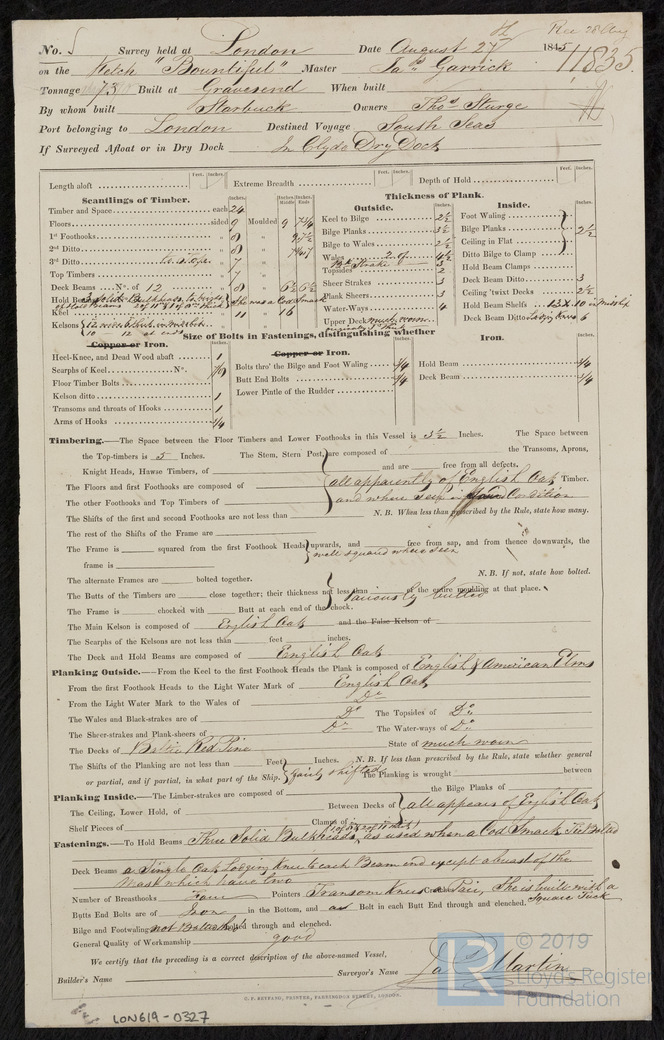 Rec 28 Aug
No. 5 Survey held at London Date August 27th 1845
11835
on the Ketch "Bountiful" Master Jas Garrick
Tonnage 73 Built at Gravesend When built
By whom built Starbuck Owners Thos Sturge
Port belonging to London Destined Voyage South Seas
If Surveyed Afloat or in Dry Dock In Clyde Dry Dock
Feet. Inches. Feet. Inches. Feet. Inches.
Length aloft Extreme Breadth Depth of Hold
Scantlings of Timber.
Timber and Space each 24
Floors sided 9 Moulded 9 7¼
1st Foothooks " 8 "
2nd Ditto " 8 "
3rd Ditto " 7 "
Top Timbers " 7 "
Deck Beams No. of 12 " 8 " 6½
Hold Beams She was a Cod Smack
Keel " 11 " 16
Kelsons
Thickness of Plank.
Outside.
Keel to Bilge 2½
Bilge Planks 3½
Bilge to Wales 2½
Wales 4½
Topsides 2
Sheer Strakes 3
Plank Sheers 3
Water-Ways 4
Upper Deck much worn
Inside.
Foot Waling
Bilge Planks 2½
Ceiling in Flat
Ditto Bilge to Clamp
Hold Beam Clamps
Deck Beam Ditto 3
Ceiling 'twixt Decks 2½
Hold Beam Shelfs 13 x 10
Deck Beam Ditto Lodging Knees 6
Size of Bolts in Fastenings, distinguishing whether
Copper or Iron.
Heel-Knee, and Dead Wood abaft 1
Scarphs of Keel No.
Floor Timber Bolts
Kelson ditto 1
Transoms and throats of Hooks 1
Arms of Hooks ¾
Copper or Iron.
Bolts thro' the Bilge and Foot Waling ¾
Butt End Bolts ¾
Lower Pintle of the Rudder
Iron.
Hold Beam ¾
Deck Beam ¾
Timbering.—The Space between the Floor Timbers and Lower Foothooks in this Vessel is 3½ Inches. The Space between
the Top-timbers is 5 Inches. The Stem, Stern Post, are composed of the Transoms, Aprons,
Knight Heads, Hawse Timbers, of and are free from all defects.
The Floors and first Foothooks are composed of all apparently of English Oak Timber.
The other Foothooks and Top Timbers of and where seen in Condition
The Shifts of the first and second Foothooks are not less than N.B. When less than prescribed by the Rule, state how many.
The rest of the Shifts of the Frame are
The Frame is squared from the first Foothook Heads upwards, and free from sap, and from thence downwards, the
frame is well squared where seen
N.B. If not, state how bolted.
The alternate Frames are bolted together.
The Butts of the Timbers are close together; their thickness not less than of the entire moulding at that place.
variously butted
The Frame is chocked with Butt at each end of the chock.
The Main Kelson is composed of English Oak and the False Kelson of
The Scarphs of the Kelsons are not less than feet inches.
The Deck and Hold Beams are composed of English Oak
Planking Outside.—From the Keel to the first Foothook Heads the Plank is composed of English & American Elms
From the first Foothook Heads to the Light Water Mark of English Oak
From the Light Water Mark to the Wales of Do
The Wales and Black-strakes are of Do The Topsides of Do
The Sheer-strakes and Plank-sheers of Do The Water-ways of Do
The Decks of Baltic Red Pine State of much worn
The Shifts of the Planking are not less than Feet Inches. N.B. If less than prescribed by the Rule, state whether general
or partial, and if partial, in what part of the Ship. fairly shifted The Planking is wrought between
Planking Inside.—The Limber-strakes are composed of the Bilge Planks of
The Ceiling, Lower Hold, of Between Decks of all appears of English Oak
Shelf Pieces of Clamps of
Fastenings.—To Hold Beams Three Solid Bulkheads, as used when a Cod Smack
Deck Beams a Single Oak Lodging Knee to each Beam end except abreast of the
Mast which have two
Number of Breasthooks Four Pointers Transom Knees a Pair, She is built with a
Square Tuck
Butts End Bolts are of Iron in the Bottom, and a Bolt in each Butt End through and clenched.
Bilge and Footwaling not Bolted through and clenched.
General Quality of Workmanship good
We certify that the preceding is a correct description of the above-named Vessel,
Builder's Name Surveyor's Name Jas Martin
C. F. SEYFANG, PRINTER, FARRINGDON STREET, LONDON.
LON619-0327
LR © 2019
Lloyd's Register
Foundation